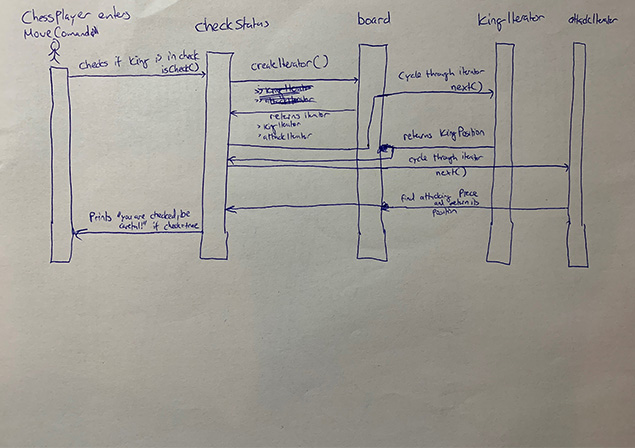 ChessPlayer enters
MoveComand
checkStatus
board
KingIterator
attackIterator
Checks if King is in check
isCheck()
createIterator()
> KingIterator
> attackIterator
returns iterator
> KingIterator
> attackIterator
Cycle through iterator
next()
returns KingPosition
cycle through iterator
next()
find attacking Piece
and return its
Position
Prints "You are checked, be
careful!" if check=true